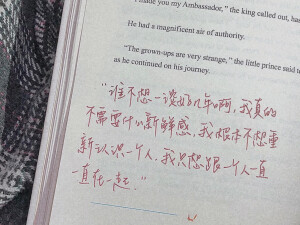 I made you my Ambassador," the king called out, has
He had a magnificent air of authority.
"The grown-ups are very strange," the little prince said to
as he continued on his journey.
"谁不想一谈好几年啊，我真的
不需要什么新鲜感，我根本不想重
新认识一个人，我只想跟一个人一直
一直在一起."